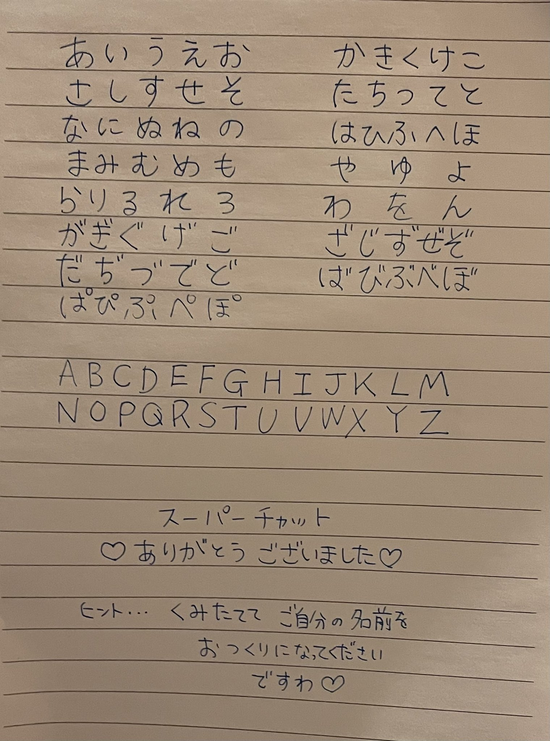 あいうえお かきくけこ
さしすせそ たちってと
なにぬねの はひふへほ
まみむめも や ゆ よ
らりるれろ わ を ん
がぎぐげご ざじずぜぞ
だぢづでど ばびぶべぼ
ぱぴぷぺぽ
ABCDEFGHIJKLM
NOPQRSTUVWXYZ
スーパーチャット
♡ありがとうございました♡
ヒント... くみたてて ご自分の名前を
おつくりになってください
ですわ♡